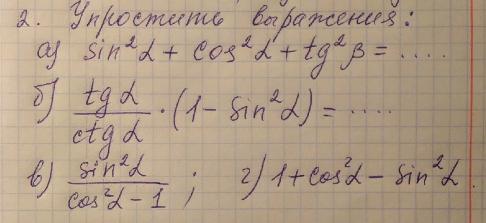 2. Упростить выражения:
а) sin²α + cos²α + tg²β = ....
б) tgα/ctgα · (1 - sin²α) = ....
в) sin²α/cos²α - 1 ; г) 1 + cos²α - sin²α.